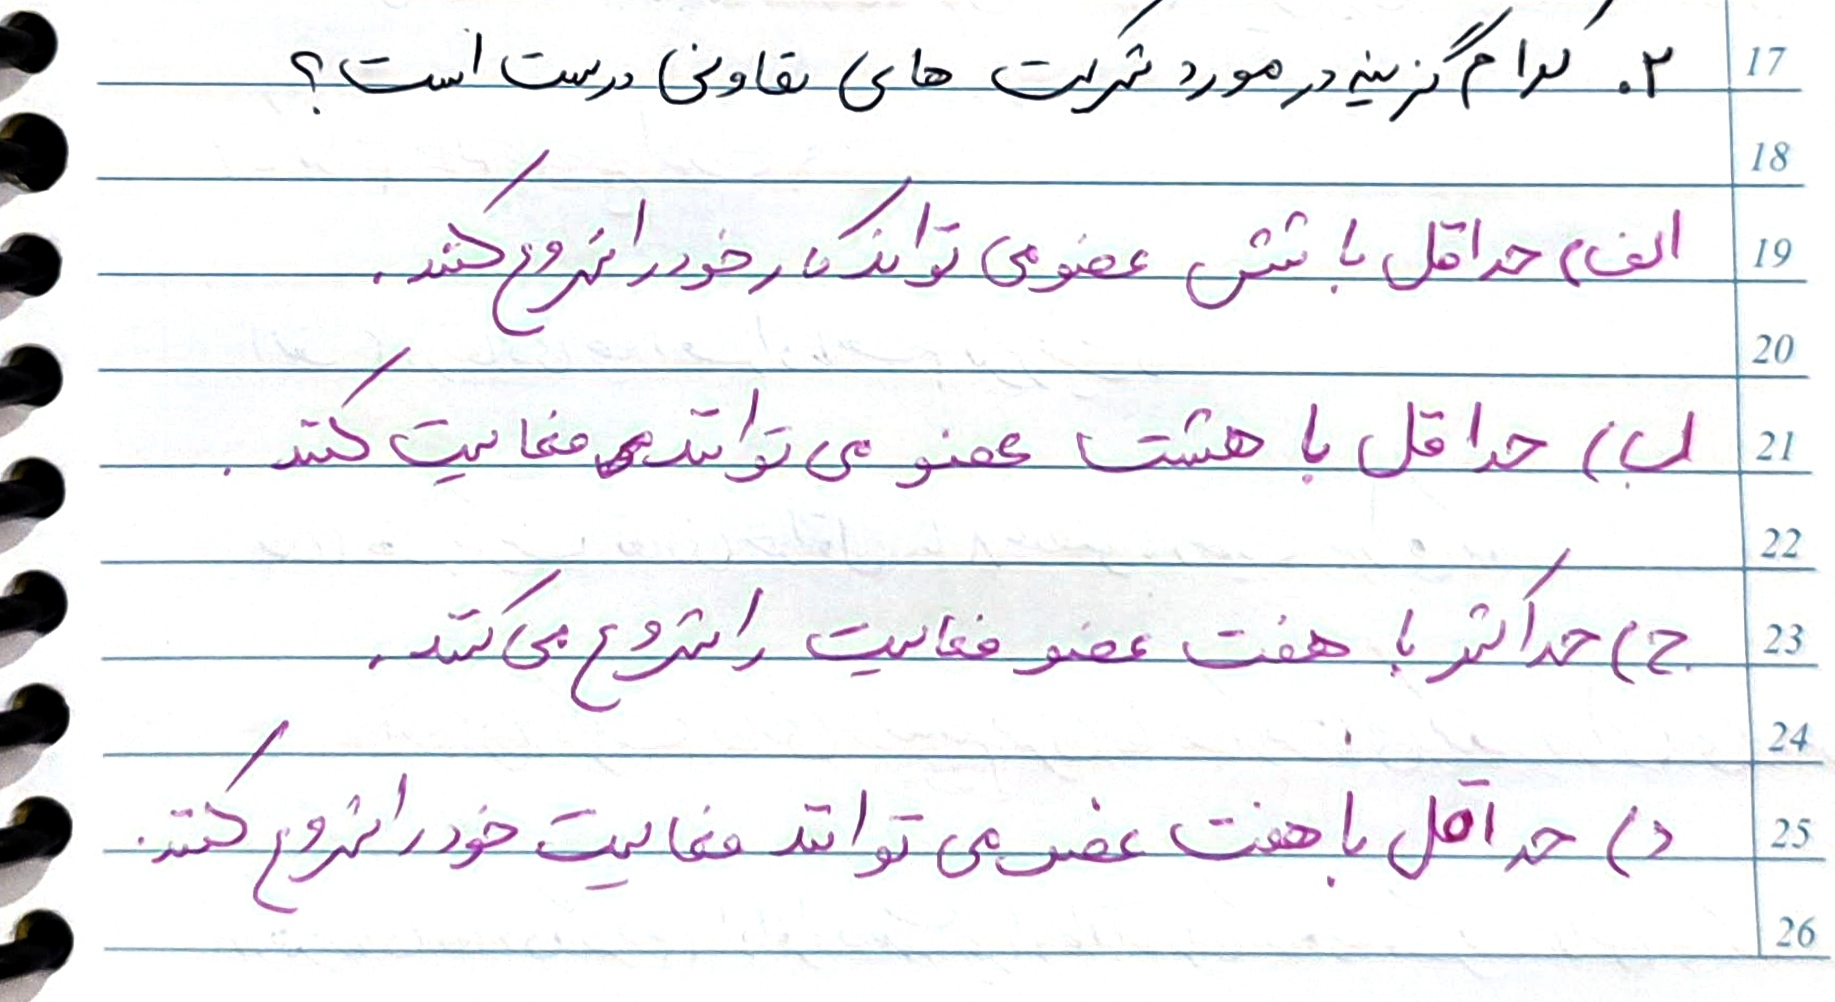 17
۲. کدام گزینه در مورد شرکت های تعاونی درست است؟
18
الف) حداقل با شش عضو می تواند کار خود را شروع کنند.
19
20
ب) حداقل با هشت عضو می توانند فعالیت کنند.
21
22
ج) حداکثر با هفت عضو فعالیت را شروع می کنند.
23
24
د) حداقل با هفت عضو می توانند فعالیت خود را شروع کنند.
25
26